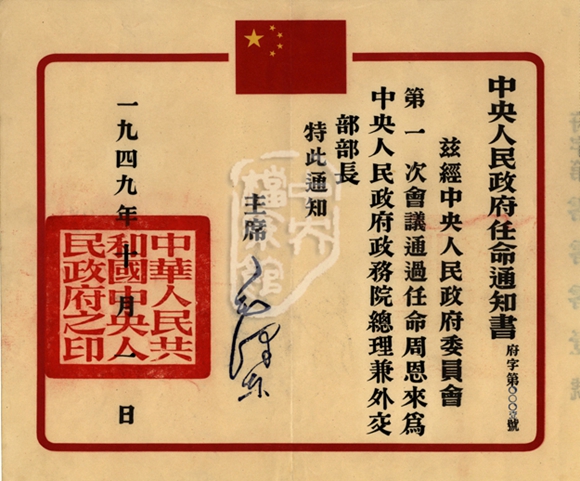 中央人民政府任命通知書
府字第〇〇〇號
茲經中央人民政府委員會
第一次會議通過任命周恩來爲
中央人民政府政务院總理兼外交
部部長
特此通知
主席
毛澤东
一九四九年十月一日
中華人民共
和國中央人
民政府之印